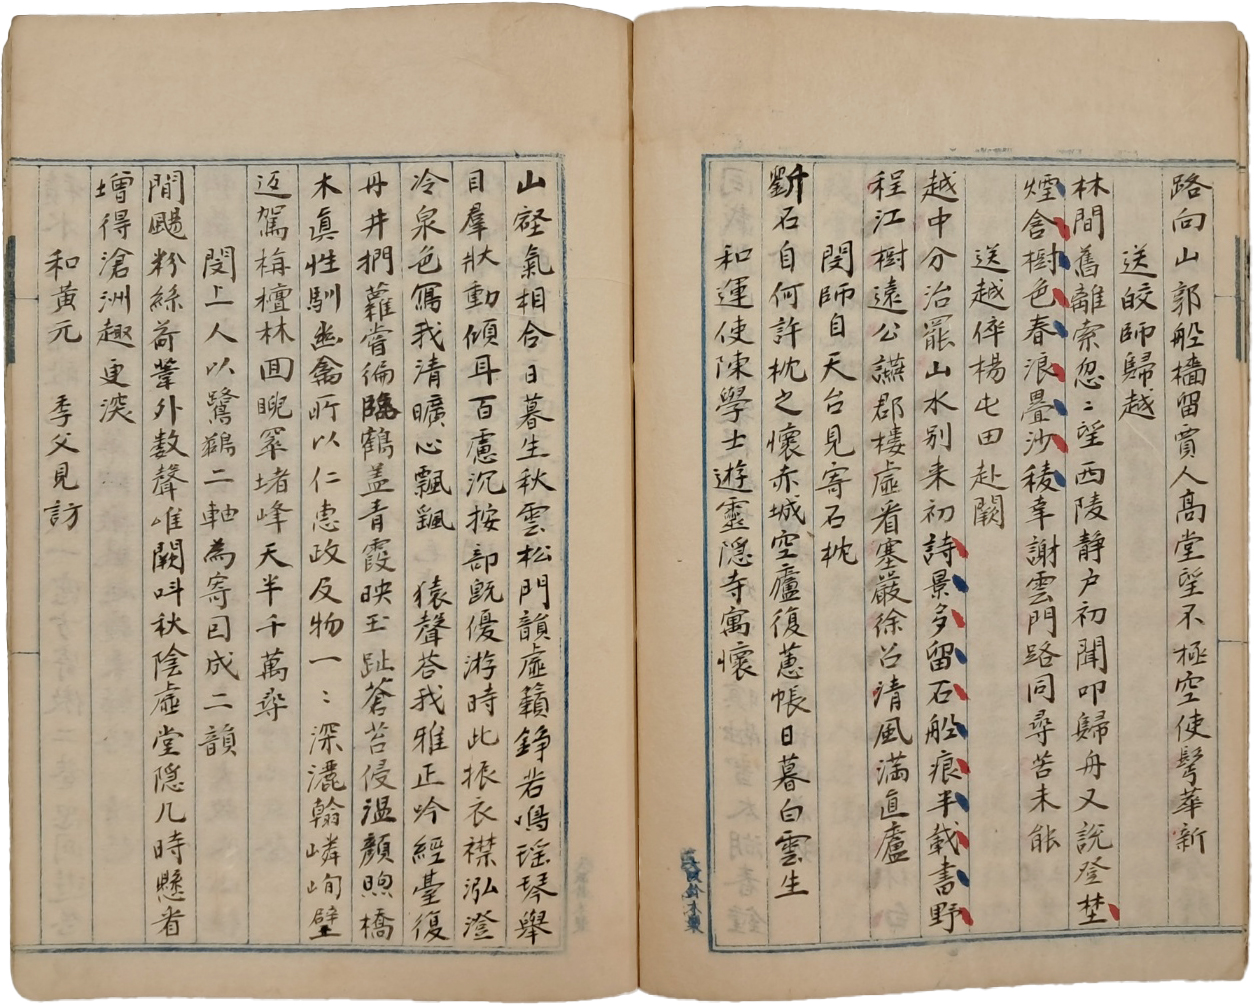 路向山郭船檣留賈人高堂望不極空使髩華新
送皎師歸越
林間舊離索忽〻望西陵静户初聞叩歸舟又說登埜
煙含樹色春浪疊沙稜幸謝雲門路同尋苦未能
送越倅楊屯田赴闕
越中分治罷山水别来初詩景多留石船痕半載書野
程江樹遠公讌郡樓虛省塞嚴徐召清風滿直廬
閔師自天台見寄石枕
斲石自何許枕之懷赤城空廬復蕙帳日暮白雲生
和運使陳學士遊靈隠寺寓懷
山壑氣相合旦暮生秋雲松門韻虛籟錚若鳴瑶琴舉
目羣狀動傾耳百慮沉按部既優游時此振衣襟泓澄
冷泉色寫我清曠心飄颻猿聲荅我雅正吟經臺復
丹井捫蘿嘗徧臨鶴盖青霞映玉趾蒼苔侵温顏煦橋
木真性馴幽禽所以仁惠政及物一〻深灑翰嶙峋壁
迈駕栴檀林囬睨窣堵峰天半千萬尋
閔上人以鷺鷀二軸為寄因成二韻
間颺粉絲荷葦外數聲唯闕呌秋陰虛堂隠几時懸看
增得滄洲趣更㴱
和黃元　季父見訪